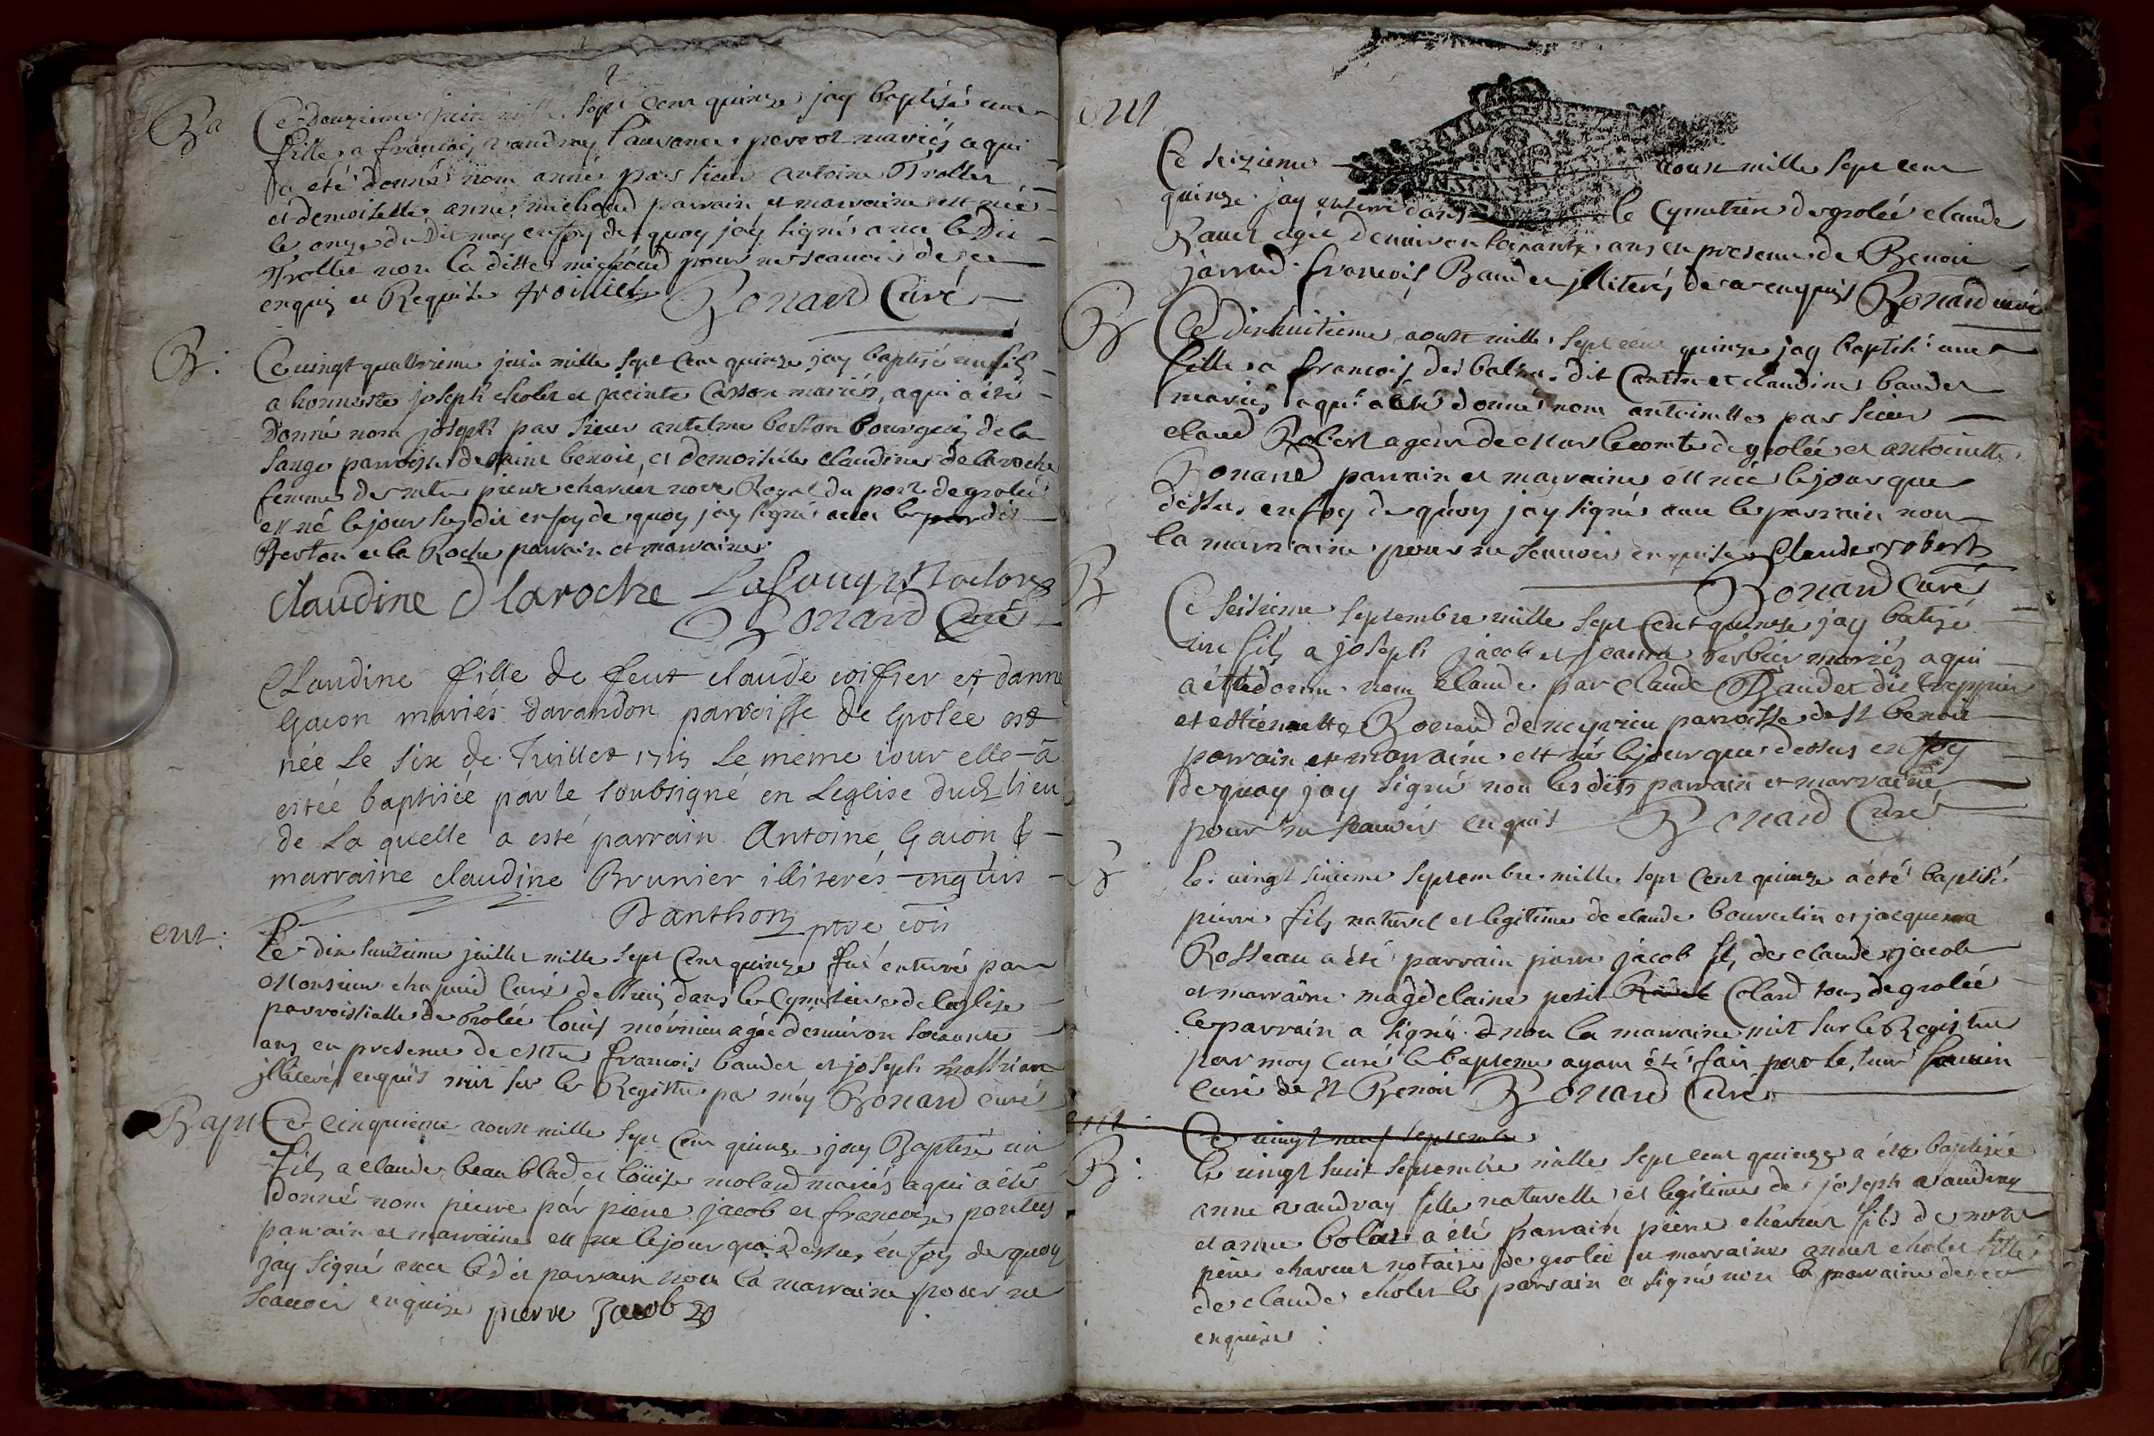 Ba Ce douzieme juin mille sept cent quinze jay baptisé une
fille a francois vaudray laurance perrot mariés a qui
a eté donné nom anne par sieur antoine Trollier
et demoiselle anne michoud parrain et marraine est née
le onze du dit moy en foy de quoy jay signé avec le dit
Trollier non la ditte michoud pour ne scauoir de ce
enquis et Requise Bonard Curé
B: Ce uingt quattrieme juin mille sept cent quinze jay baptisé un fils
a honneste joseph cholet et jacinte mariés, a qui a été
Donné nom joseph par sieur antelme berton bourgeois de la
sauge parroisse de saint benoit, et demoiselle claudine de la roche
femme de pierre charuet Royal du port de grolée
est né le jour susdit en foy de quoy jay signé auec le dit
Berton et la Roche parrain et marraine
claudine D laroche
Bonard Curé
Claudine fille de feut claude coiffier et danne
Gaion mariés davandon parroisse de Grolée est
née Le six de Juillet 1715 Le meme iour elle a
estée baptisée par le soubsigné en Leglise dud lieu
de La quelle a esté parrain Antoine Gaion &
marraine claudine Brunier illiterés enquis
Danthon ptre
ent: Le dix huitieme juillet mille sept Cent quinze fut enterré par
Monsieur chapuid Curé de dans le Cymetiere de l'eglise
parroissialle de Grolée louis mornieu agée denuiron soixante
ans en presence de francois baudet et joseph
illiterés enquis mis sur le Registre par moy Bonard curé
Bapt Ce cinquieme aoust mille sept cent quinze jay Baptisé un
fils a claude beau blad et Louise molard mariés a qui a été
donné nom pierre par pierre jacob et francoise
parrain et marraine est né le jour que dessus en foy de quoy
jay signé avec le dit parrain non la marraine pour ne
scauoir enquise pierre Jacob
ent
Ce seizieme aoust mille sept cent
quinze jay enterré dans le Cymetiere de grolée claude
agé denuiron soixante ans en presence de Benoit
jarrad francois Baudet illiterés de ce enquis Bonard curé
B Ce dixhuitieme aoust mille sept cent quinze jay baptisé une
fille a francois des balme dit et claudine baudet
mariés a qui a été donné nom antoinette par sieur
claud Robert ageur de le comte de grolée et antoinette
Bonard parrain et marraine est née le jour que
dessus en foy de quoy jay signé auec le parrain non
la marraine pour ne scauoir enquise Claude robert
Bonard Curé
B Ce seizieme septembre mille sept Cent quinze jay batizé
un fils a joseph jacob et mariés a qui
a été donné nom Claude par claude Baudet dit
et estiennette de neyrieu parroisse de St benoit
parrain et marraine est né le jour que dessus en foy
de quoy jay signé non les dits parrain et marraine
pour ne scauoir enquis Bonard Curé
B le uingt sixieme septembre mille sept cent quinze a été baptisé
pierre fils naturel et legitime de claude bouvetin et jacquema
Rosseau a été parrain pierre jacob fils de claude jacob
et marraine magdelaine petit Cland tous de grolée
le parrain a signé & non la marraine mit sur le Registre
par moy curé le bapteme ayant été fait par le sieur
curé de St Benoit Bonard Curé
ent Ce uingt neuf septembre
B: le uingt huit septembre mille sept cent quinze a été baptisée
anne vaudray fille naturelle et legitime de joseph vaudray
et anne bolat a été parrain pierre charuet fils de
pierre charuet notaire de grolée et marraine anne cholet fille
de claude cholet le parrain a signé non la marraine de ce
enquise